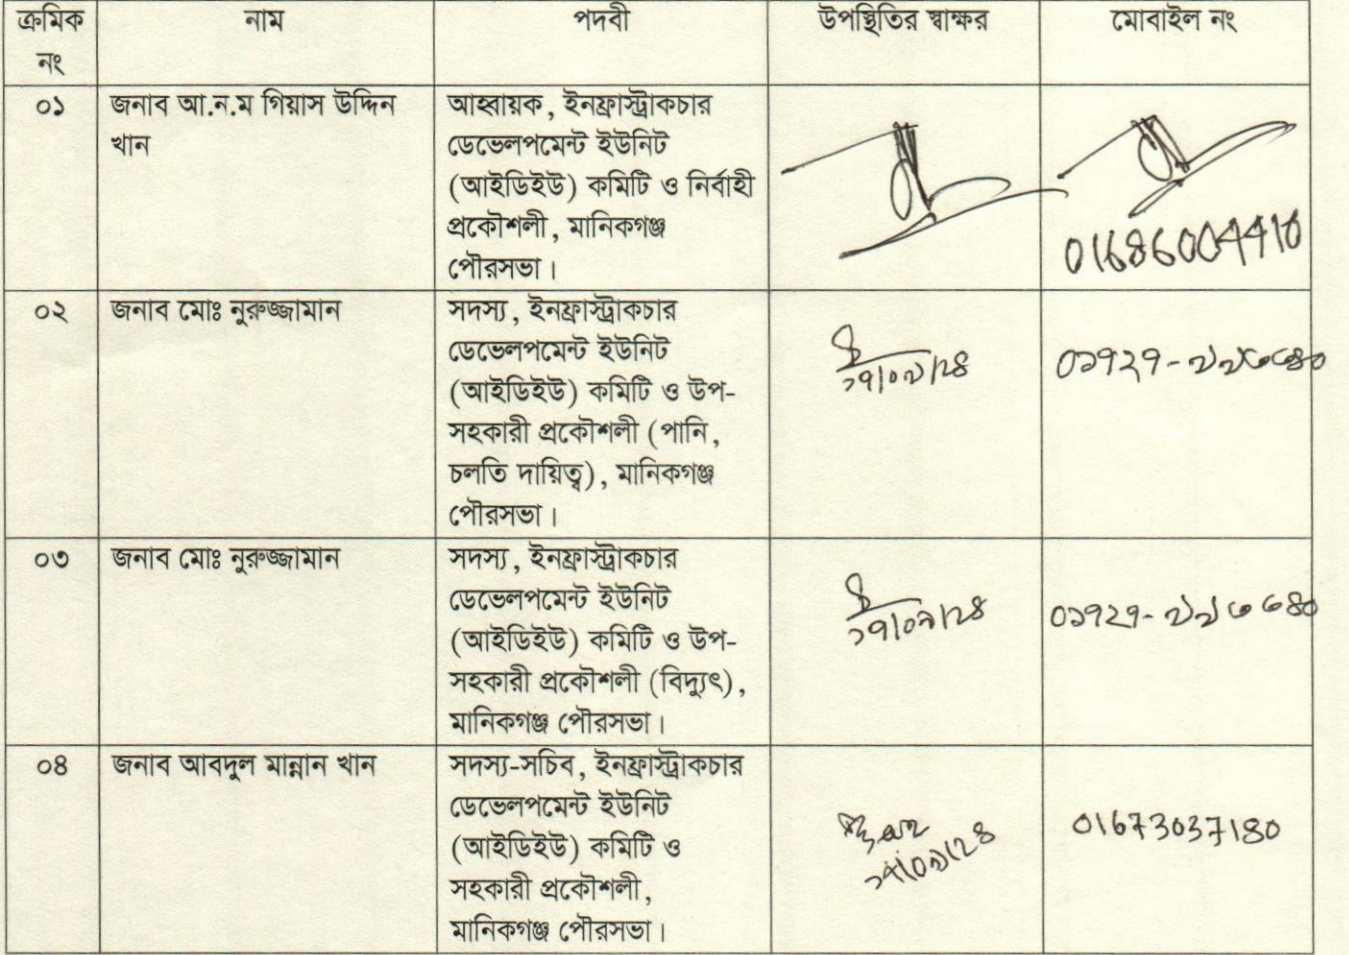 ক্রমিক নং | নাম | পদবী | উপস্থিতির স্বাক্ষর | মোবাইল নং
০১
জনাব আ.ন.ম গিয়াস উদ্দিন
খান
আহ্বায়ক, ইনফ্রাস্ট্রাকচার
ডেভেলপমেন্ট ইউনিট
(আইডিইউ) কমিটি ও নির্বাহী
প্রকৌশলী, মানিকগঞ্জ
পৌরসভা।
01686004410
০২
জনাব মোঃ নুরুজ্জামান
সদস্য, ইনফ্রাস্ট্রাকচার
ডেভেলপমেন্ট ইউনিট
(আইডিইউ) কমিটি ও উপ-
সহকারী প্রকৌশলী (পানি,
চলতি দায়িত্ব), মানিকগঞ্জ
পৌরসভা।
০৩
জনাব মোঃ নুরুজ্জামান
সদস্য, ইনফ্রাস্ট্রাকচার
ডেভেলপমেন্ট ইউনিট
(আইডিইউ) কমিটি ও উপ-
সহকারী প্রকৌশলী (বিদ্যুৎ),
মানিকগঞ্জ পৌরসভা।
০৪
জনাব আবদুল মান্নান খান
সদস্য-সচিব, ইনফ্রাস্ট্রাকচার
ডেভেলপমেন্ট ইউনিট
(আইডিইউ) কমিটি ও
সহকারী প্রকৌশলী,
মানিকগঞ্জ পৌরসভা।
01673037180